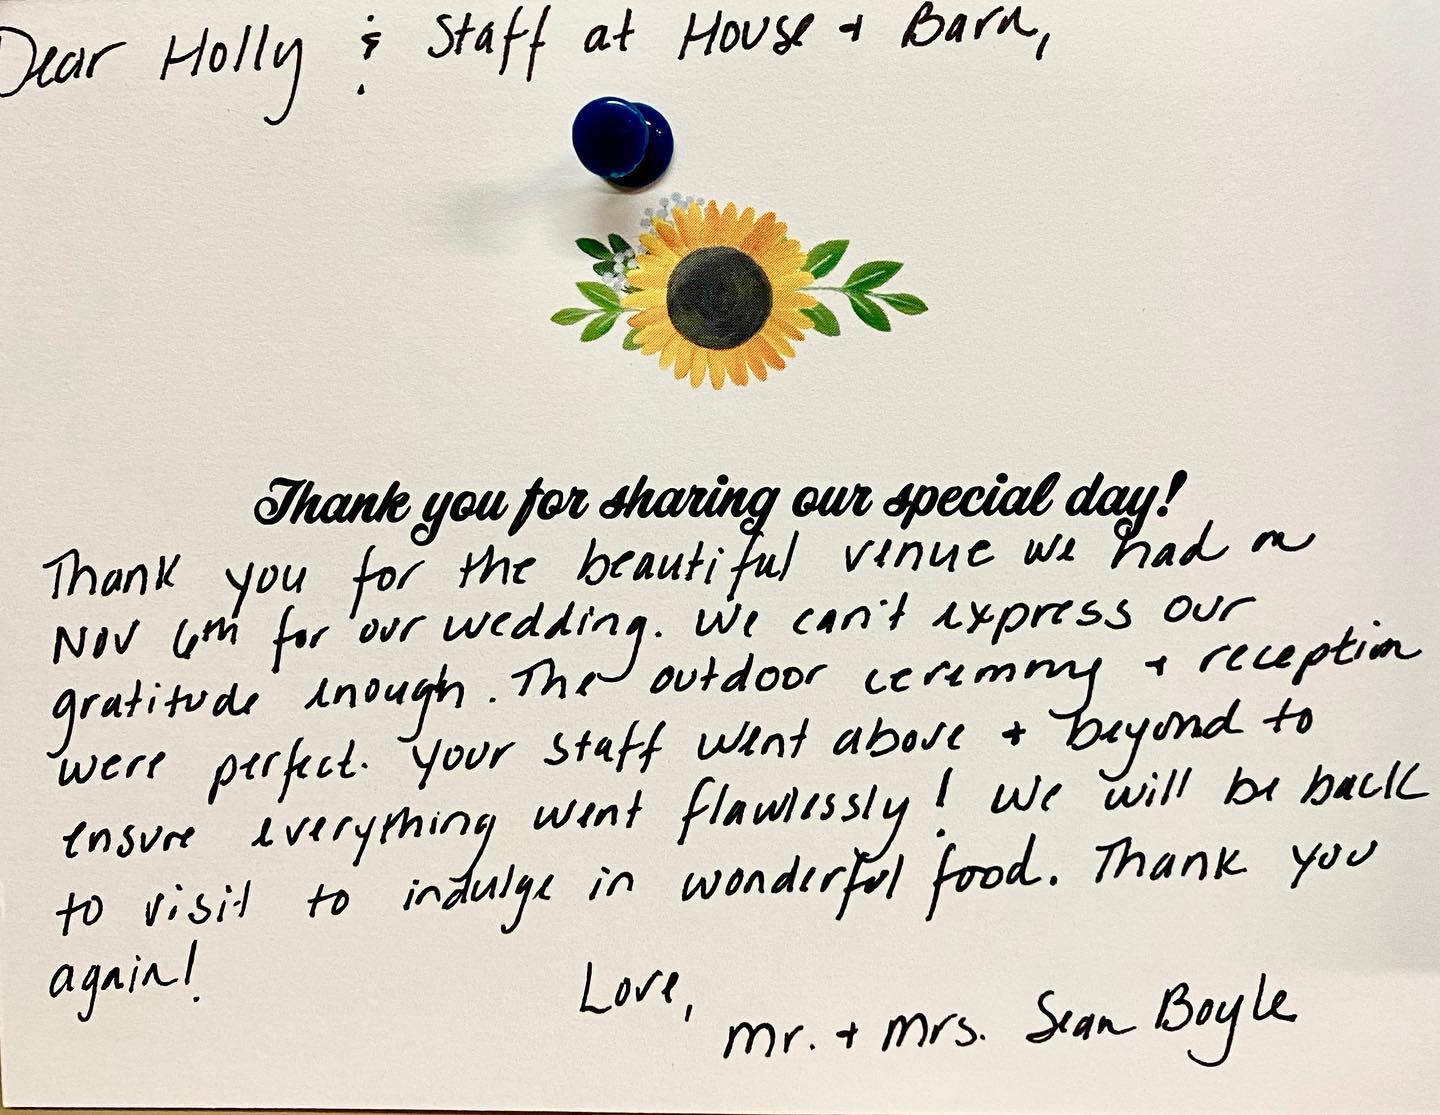 Dear Holly & Staff at House + Barn,
Thank you for sharing our special day!
Thank you for the beautiful venue we had on
Nov 6th for our wedding. We can't express our
gratitude enough. The outdoor ceremony + reception
were perfect. Your staff went above + beyond to
ensure everything went flawlessly! We will be back
to visit to indulge in wonderful food. Thank you
again!
Love,
Mr. + Mrs. Sean Boyle